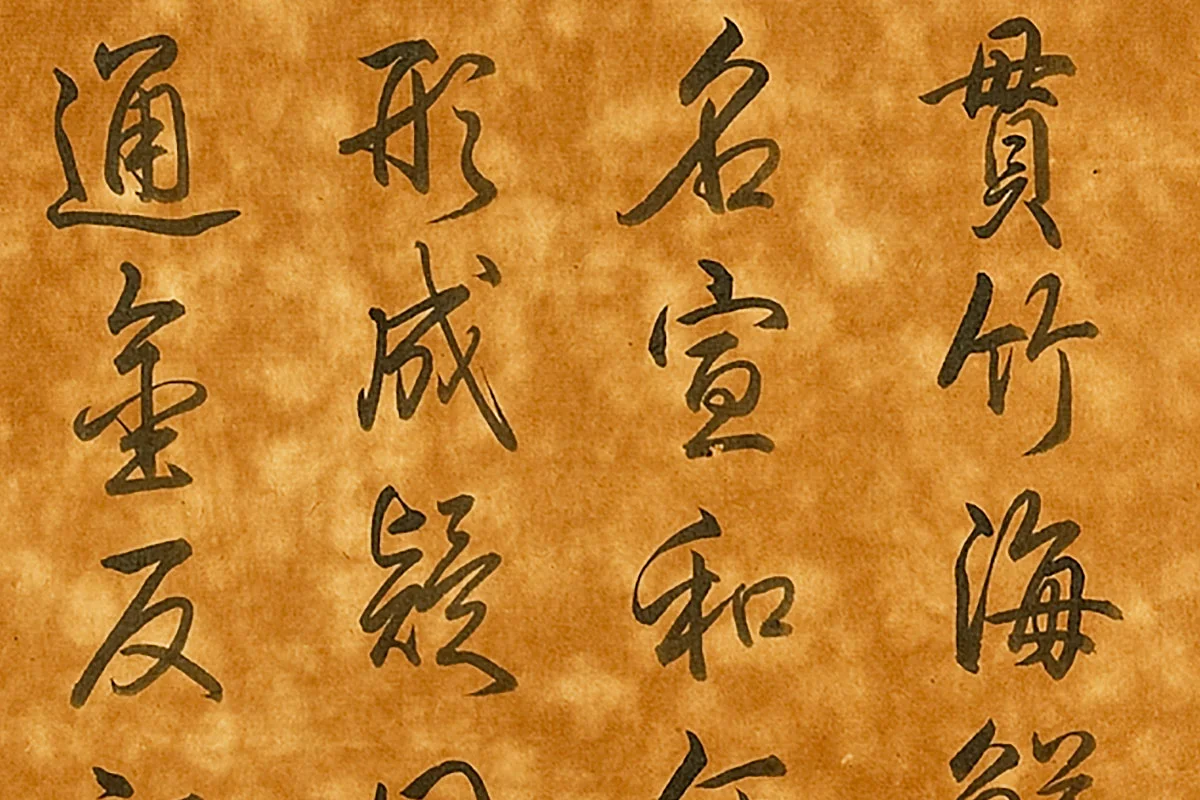 貫竹海
名宣和
形成疑
通金反